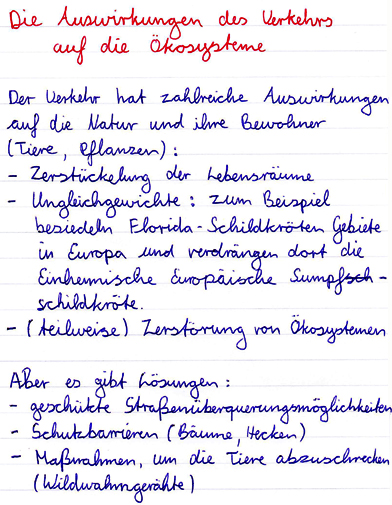 Die Auswirkungen des Verkehrs
auf die Ökosysteme
Der Verkehr hat zahlreiche Auswirkungen
auf die Natur und ihre Bewohner
(Tiere, Pflanzen):
- Zerstückelung der Lebensräume
- Ungleichgewichte: zum Beispiel
besiedeln Florida-Schildkröten Gebiete
in Europa und verdrängen dort die
Einheimische Europäische Sumpfsch-
schildkröte.
- (teilweise) Zerstörung von Ökosystemen
Aber es gibt Lösungen:
- geschükte Straßenüberquerungsmöglichkeiten
- Schutzbarrieren (Bäume, Hecken)
- Maßnahmen, um die Tiere abzuschrecken
(Wildwahrngerähte)